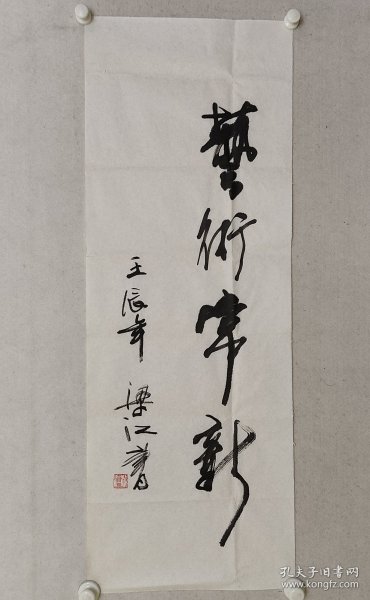 藝術常新
壬辰年 梁江書
孔夫子旧书网
www.kongfz.com